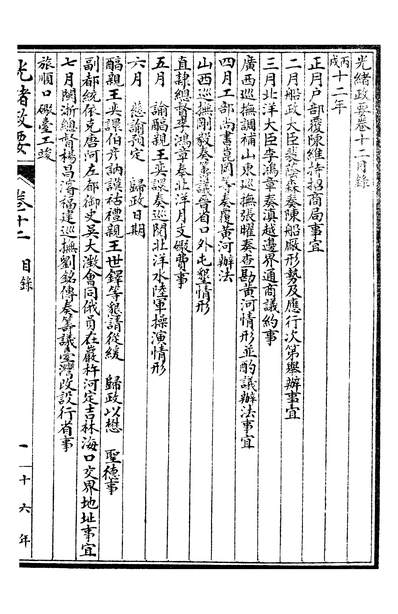 光緒政要卷十二目錄
丙戌十二年
正月戶部覆陳維持招商局事宜
二月船政大臣裴蔭森奏陳船廠形勢及應行次第舉辦事宜
三月北洋大臣李鴻章奏滇越邊界通商議約事
廣西巡撫調補山東巡撫張曜奏查勘黃河情形並酌議辦法事宜
四月工部尚書崑岡等奏覆黃河辦法
山西巡撫剛毅奏籌議晉省口外屯墾情形
直隸總督李鴻章奏北洋月支礮費事
五月 諭醇親王奕譞奏巡閱北洋水陸軍操演情形
六月 慈諭預定 歸政日期
醇親王奕譞伯彥訥謨祜禮親王世鐸等懇請從緩 歸政以懋 聖德事
副都統依克唐阿左都御史吳大澂會同俄員在嚴杵河定吉林海口交界地址事宜
七月閩浙總督楊昌濬福建巡撫劉銘傳奏籌議臺灣改設行省事
旅順口礮臺工竣
光緒政要 卷十二 目錄 一 十六年